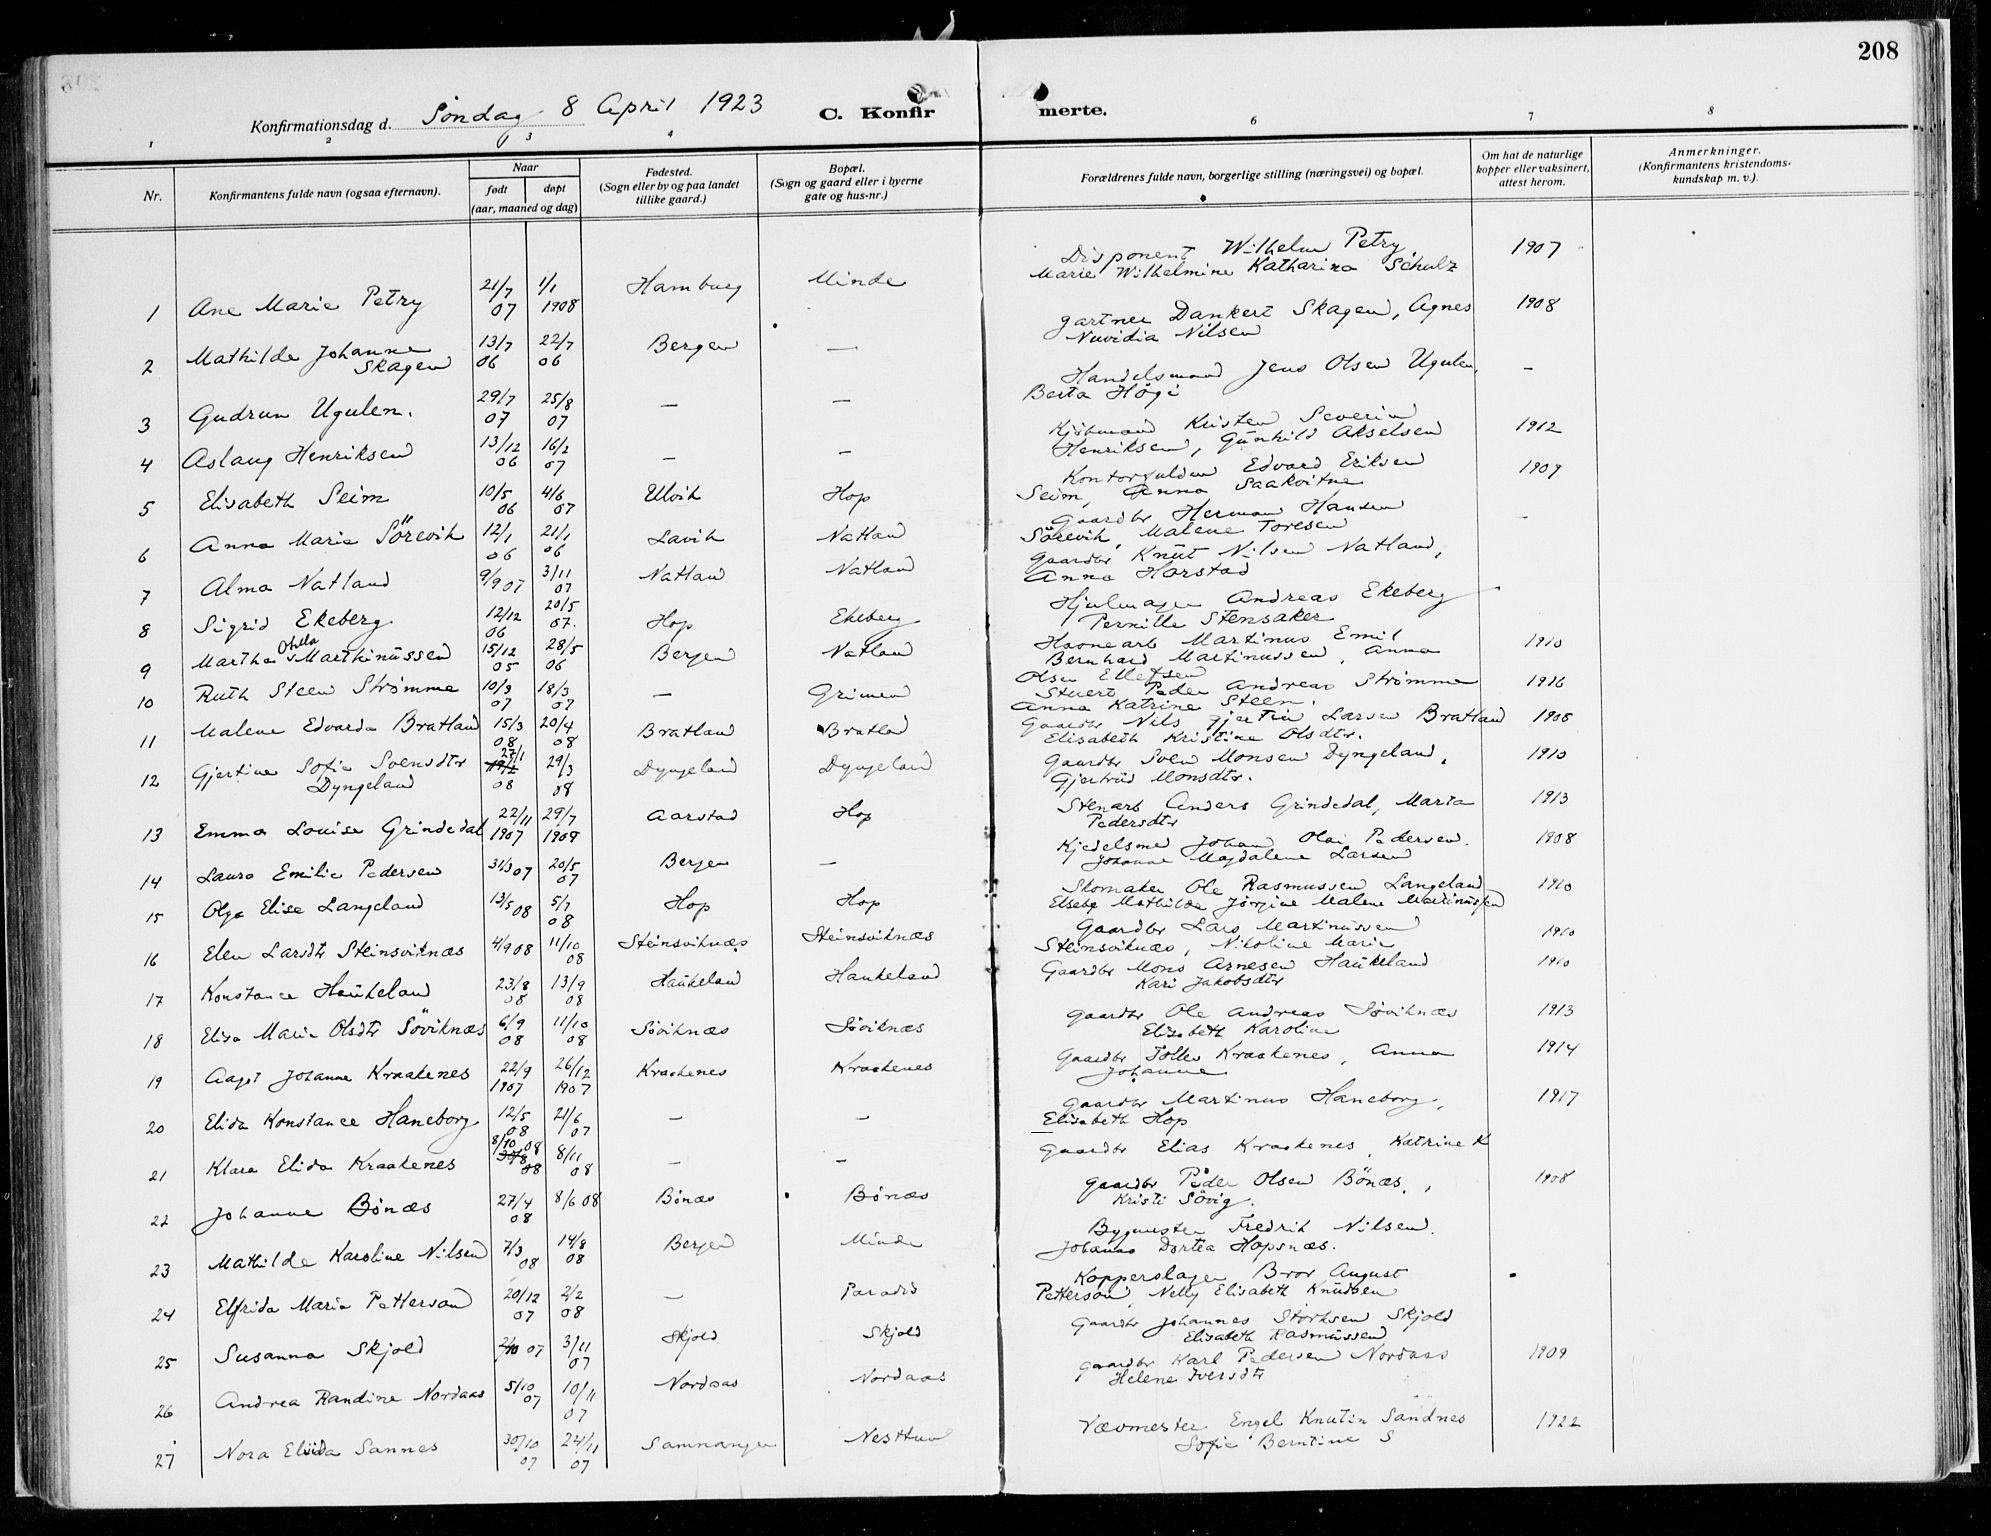 208
Konfirmationsdag d. Søndag 8 April 1923 C. Konfir merte.
1 2 3 4 6 7 8
Nr. Konfirmantens fulde navn (ogsaa efternavn). Naar født døpt (aar, maaned og dag) Fødested. (Sogn eller by og paa landet tillike gaard.) Bopæl. (Sogn og gaard eller i byerne gate og hus-nr.) Forældrenes fulde navn, borgerlige stilling (næringsvei) og bopæl. Om hat de naturlige kopper eller vaksinert, attest herom. Anmerkninger. (Konfirmantens kristendomskundskap m. v.).
1 Ane Marie Petry 21/7 07 1/1 1908 Hamburg Minde Disponent Wilhelm Petry, Marie Wilhelmine Katharina Schulz 1907
2 Mathilde Johanne Skagen 13/7 06 22/7 06 Bergen — gartner Dankert Skagen, Agnes Nuvidia Nilsen 1908
3 Gudrun Ugulen. 29/7 07 25/8 07 — — Handelsmand Jens Olsen Ugulen, Berta Högi —
4 Aslaug Henriksen 13/12 06 16/2 07 — — Kjöbmand Kristen Severin Henriksen, Gunhild Akselsen 1912
5 Elisabeth Seim 10/5 06 4/6 07 Ulvik Hop Edvard Eriksen Seim, Anna Saakvitne 1909
6 Anna Marie Sörevik 12/1 06 21/1 06 Lavik Natland Gaardbr Herman Hansen Sörevik, Malene Toresen -
7 Alma Natland 9/9 07 3/11 07 Natland Natland Gaardbr Knut Nilsen Natland, Anna Harstad
8 Sigrid Ekeberg 12/12 06 20/5 07. Hop Ekeberg Hjulmager Andreas Ekeberg Pernille Stensaker
9 Martha Otilla Marthinussen 15/12 05 28/5 06 Bergen Natland Havnearb Martinus Emil Bernhard Martinussen, Anna Olsen Ellefsen 1910
10 Ruth Steen Strømme 10/3 07 18/3 07 — Grimen Stuert Peder Andreas Strømme Anna Katrine Steen. 1916
11 Malene Edvarda Bratland 15/3 08 20/4 08 Bratland Bratlad Gaardbr Nils Gjertin Larsen Bratland Elisabeth Kristine Olsdtr. 1908
12 Gjertine Sofie Svensdtr Dyngeland 27/1 19/2 08 29/3 08 Dyngeland Dyngeland Gaardbr Sven Monsen Dyngeland, Gjertrud Monsdtr. 1910
13 Emma Louise Grindedal 22/11 1907 29/7 1908 Aarstad Hop Stenarb Anders Grindedal, Maria Pedersdtr 1913
14 Laura Emilie Pedersen 31/3 07 20/5 07 Bergen — Kjedelsmed Johan Olai Pedersen. Johanne Magdalene Larsen 1908
15 Olga Elise Langeland 13/5 08 5/7 08 Hop Hop Skomaker Ole Rasmussen Langeland Elseby Mathilde Jörgine Malene Martinussen 1910
16 Elen Larsdtr Steinsviknæs 4/9 08 11/10 08 Steinsviknæs Steinsviknæs Gaardbr Lars Martinussen Steinsviknæs, Nikoline Marie 1910
17 Konstance Haukeland 23/8 08 13/9 08 Haukeland Haukeland Gaardbr Mons Arnesen Haukeland Kari Jakobsdtr 1910
18 Elisa Marie Olsdtr Söviknæs 6/9 08 11/10 08 Söviknæs Söviknæs gaardbr Ole Andreas Söviknæs Elisabeth Karoline 1913
19 Aagot Johanne Kraakenes 22/9 1907 26/12 1907 Kraakenes Kraakenes Gaardbr Tollev Kraakenes, Anna Johanne 1914
20 Elida Konstance Haneborg 12/5 08 21/6 07 — — gaardbr Martinus Haneborg, Elisabeth Hop 1917
21 Klara Elida Kraakenes 8/10 08 30/8 08 8/11 08 — — Gaardbr Elias Kraakenes, Katrine K
22 Johanne Bönæs 27/4 08 8/6 08 Bönæs Bönæs gaardbr Peder Olsen Bönæs, Kristi Sövig. 1908
23 Mathilde Karoline Nilsen 7/3 08 14/8 08 Bergen Minde Bygmester Fredrik Nilsen. Johanne Dortea Hopsnæs.
24 Elfrida Maria Petterson 20/12 07 2/2 08 — Paradis Kopperslager Bror August Petterson, Nelly Elisabeth Knudsen
25 Susanna Skjold 2/10 07 3/11 07 Skjold Skjold Gaardbr Johannes Storksen Skjold Elisabeth Rasmussen
26 Andrea Randine Nordaas 5/10 07 10/11 07 Nordaas Nordaas gaardbr Karl Pedersen Nordaas Helene Iversdtr 1909
27 Nora Elvida Sannes 30/10 07 24/11 07 Samnanger Nesttun Vævmester Engel Knutin Sandnes Sofie Berntine S 1922